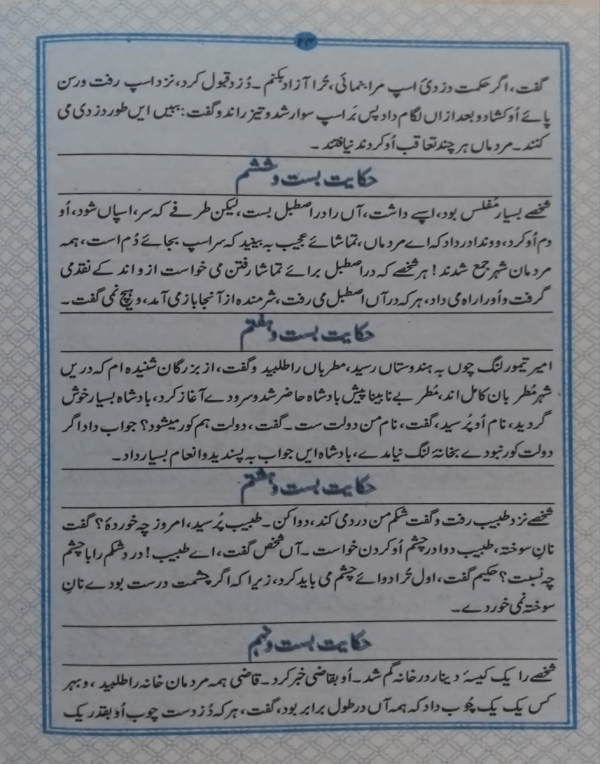 ۲۳
گفت، اگر حکمت دزدیٔ اسپ مرا بنمائی، تُرا آزاد بکنم ۔ دُزد قبول کرد، نزد اسپ رفت ورسن
پائے اُو کشاد و بعد ازاں لگام داد پس بَر اسپ سوار شد و تیز راند و گفت: بہبیں ایں طور دزدی می
کنند ۔ مردماں ہر چند تعاقب اُو کردند نیافتند ۔
حکایت بست و ششم
شخصے بسیار مُفلس بود، اسپے داشت، آں را در اصطبل بست، لیکن طرفے کہ سر، اسپاں شود، اُو
دم اُو کرد، و وندا در داد کہ اے مردماں، تماشائے عجیب بہ بینید کہ سر اسپ بجائے دُم است، ہمہ
مردمان شہر جمع شدند! ہر شخصے کہ در اصطبل برائے تماشا رفتن می خواست از و اند کے نقدمی
گرفت و اُورا راہ می داد، ہر کہ در آں اصطبل می رفت، شرمندہ از آنجا باز می آمد، و ہیچ نمی گفت ۔
حکایت بست و ہفتم
امیر تیمور لنگ چوں بہ ہندوستاں رسید، مطرباں را طلبید و گفت، از بزرگان شنیدہ ام کہ دریں
شہر مُطربان کامل اند، مُطربے نابینا پیش بادشاہ حاضر شد و سرودے آغاز کرد، بادشاہ بسیار خوش
گردید، نام اُو پُرسید، گفت، نام من دولت ست ۔ گفت، دولت ہم کور میشود؟ جواب داد اگر
دولت کور نبودے بخانۂ لنگ نیامدے، بادشاہ ایں جواب بہ پسندید و انعام بسیار داد ۔
حکایت بست و ہشتم
شخصے نزد طبیب رفت و گفت شکم من درد می کند، دوا کن ۔ طبیب پُرسید، امروز چہ خوردۂ؟ گفت
نانِ سوختہ، طبیب دوا در چشم اُو کردن خواست ۔ آں شخص گفت، اے طبیب! درد شکم را با چشم
چہ نسبت؟ حکیم گفت، اول تُرا دوائے چشم می باید کرد، زیرا کہ اگر چشمت درست بودے نانِ
سوختہ نمی خوردے ۔
حکایت بست و نہم
شخصے را یک کیسۂ دینار در خانہ گم شد ۔ اُو بقاضی خبر کرد ۔ قاضی ہمہ مردمان خانہ را طلبید، و بہر
کس یک یک چُوب داد کہ ہمہ آں در طول برابر بود، گفت، ہر کہ دُزدست چوب اُو بقدر یک